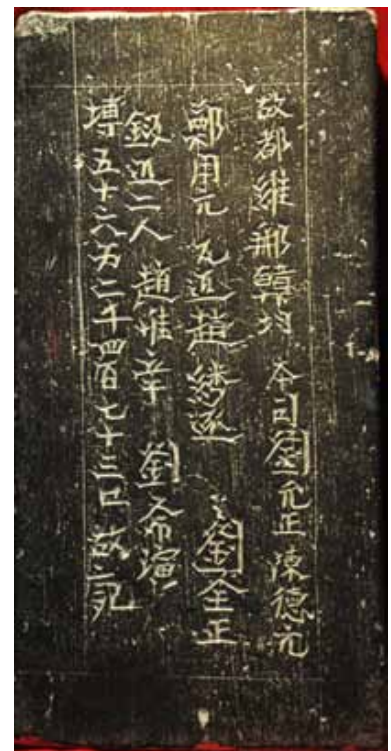 故都維那韓均 本司劉允正陳德元
鄭用元 瓦近趙 劉全正
近二人 趙惟辛 劉希演
塼五十六万二千四百七十三口 故